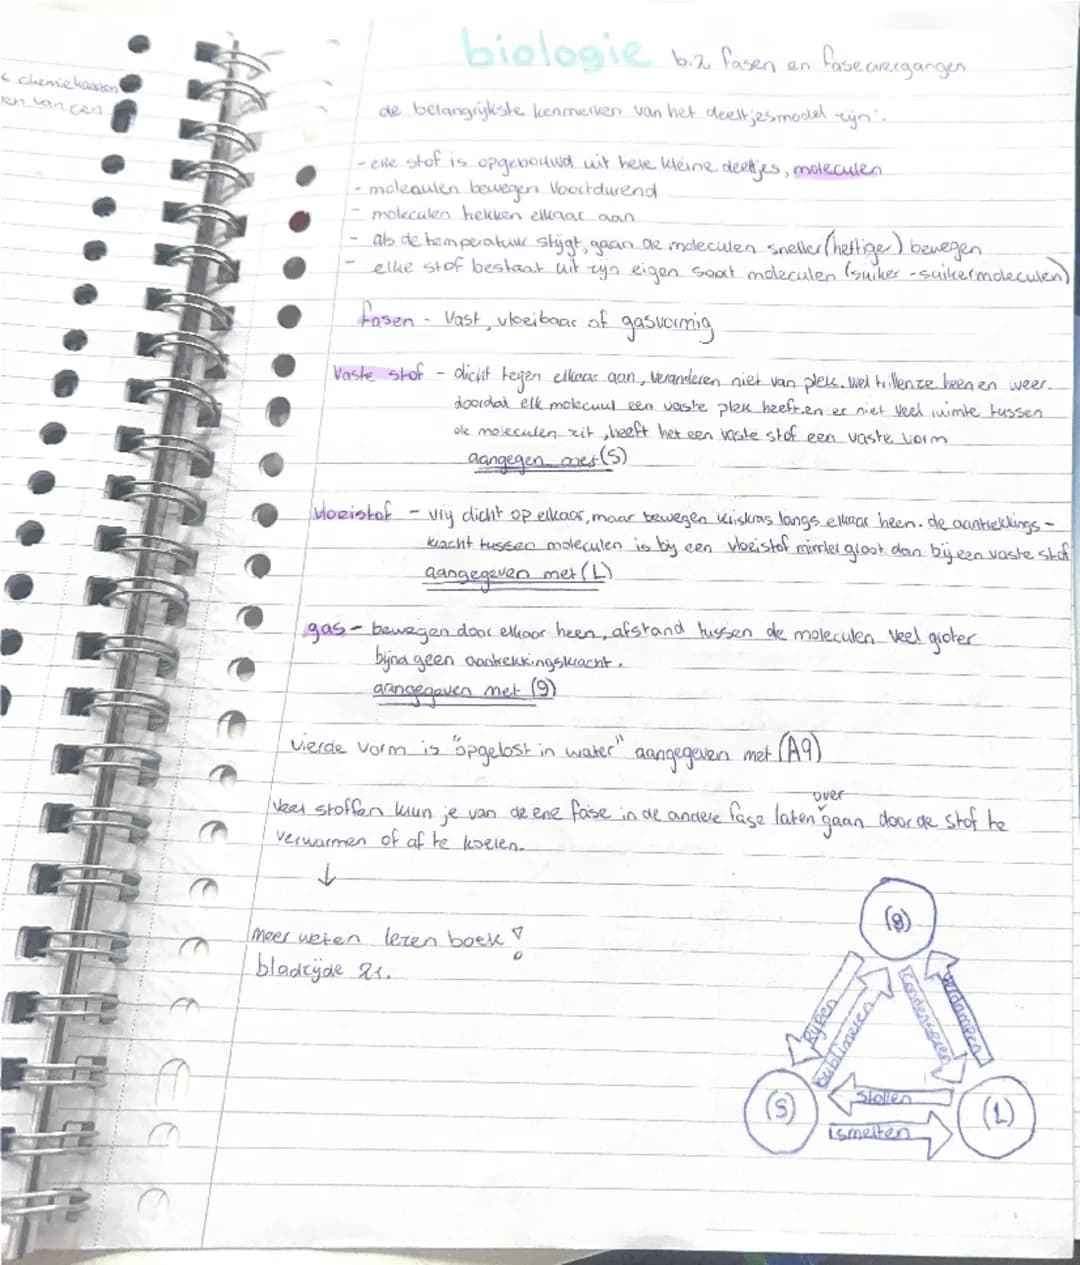 s chemiekaarten
biologie b.2 fasen en faseovergangen
de belangrijkste kenmerken van het deeltjesmodel zijn:
- elke stof is opgebouwd uit hele kleine deeltjes, moleculen
- moleculen bewegen voortdurend
- moleculen trekken elkaar aan
- als de temperatuur stijgt, gaan de moleculen sneller (heftiger) bewegen
- elke stof bestaat uit zijn eigen soort moleculen (suiker - suikermoleculen)
fasen - Vast, vloeibaar of gasvormig
Vaste stof - dicht tegen elkaar aan, veranderen niet van plek. wel trillen ze heen en weer.
doordat elk molecuul een vaste plek heeft en er niet veel ruimte tussen
de moleculen zit, heeft het een vaste stof een vaste vorm
aangegen met (S)
vloeistof - vrij dicht op elkaar, maar bewegen kriskras langs elkaar heen. de aantrekkings-
kracht tussen moleculen is bij een vloeistof minder groot dan bij een vaste stof
aangegeven met (L)
gas - bewegen door elkaar heen, afstand tussen de moleculen veel groter
bijna geen aantrekkingskracht.
aangegeven met (g)
vierde vorm is "opgelost in water" aangegeven met (Aq)
over
Veel stoffen kun je van de ene fase in de andere fase laten gaan door de stof te
verwarmen of af te koelen.
↓
Meer weten lezen boek!
bladzijde 21.
(g)
Rijpen
sublimeren
Condenseren
verdampen
(S)
Stollen
smelten
(L)